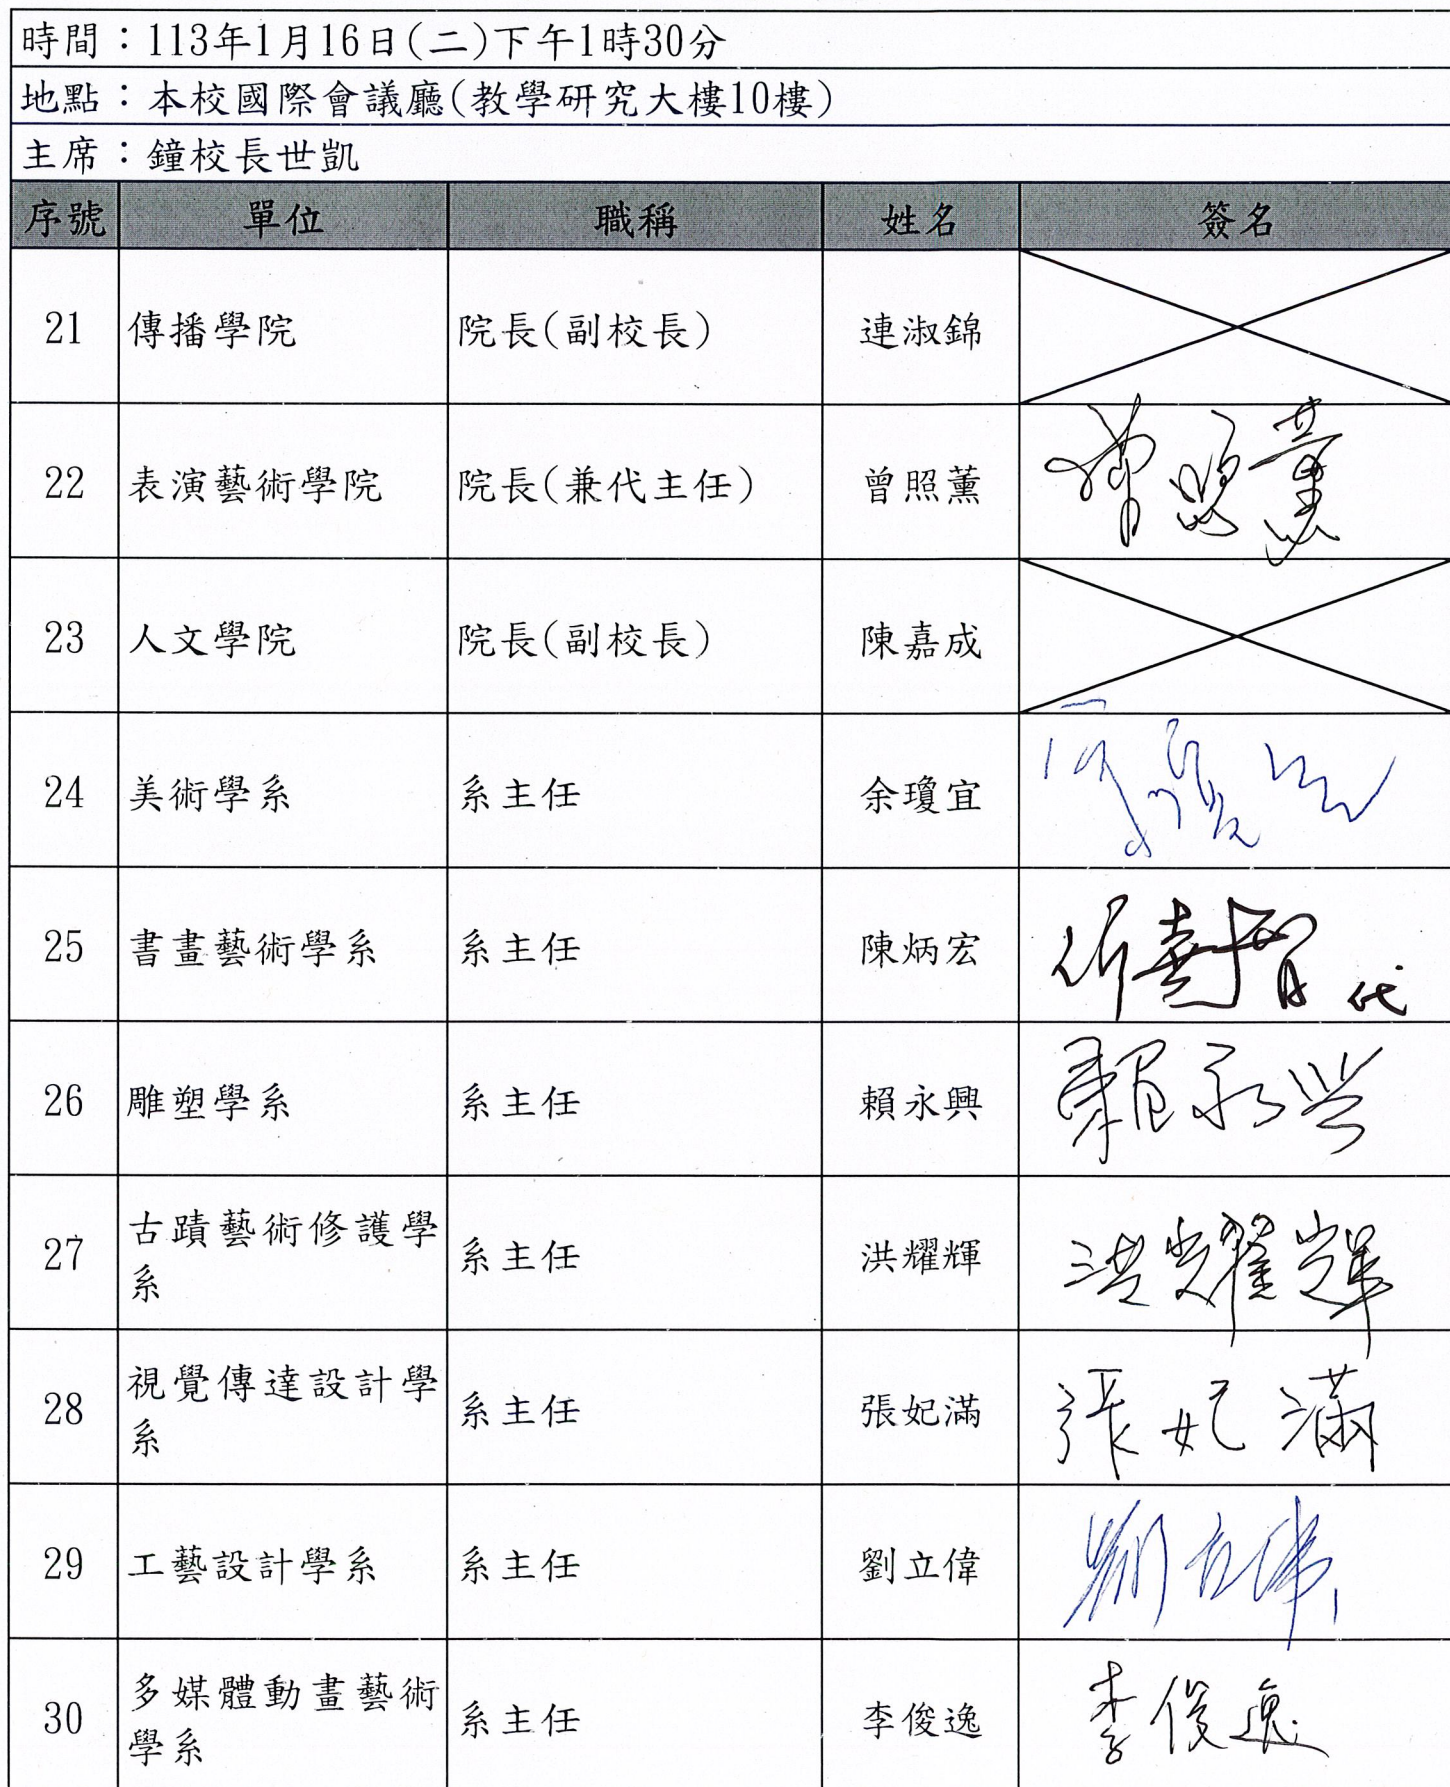 時間：113年1月16日(二)下午1時30分
地點：本校國際會議廳(教學研究大樓10樓)
主席：鐘校長世凱
序號 單位 職稱 姓名 簽名
21 傳播學院 院長(副校長) 連淑錦
22 表演藝術學院 院長(兼代主任) 曾照薰 曾照薰
23 人文學院 院長(副校長) 陳嘉成
24 美術學系 系主任 余瓊宜
25 書畫藝術學系 系主任 陳炳宏 代
26 雕塑學系 系主任 賴永興 賴永興
27 古蹟藝術修護學
系 系主任 洪耀輝 洪耀輝
28 視覺傳達設計學
系 系主任 張妃滿 張妃滿
29 工藝設計學系 系主任 劉立偉 劉立偉
30 多媒體動畫藝術
學系 系主任 李俊逸 李俊逸